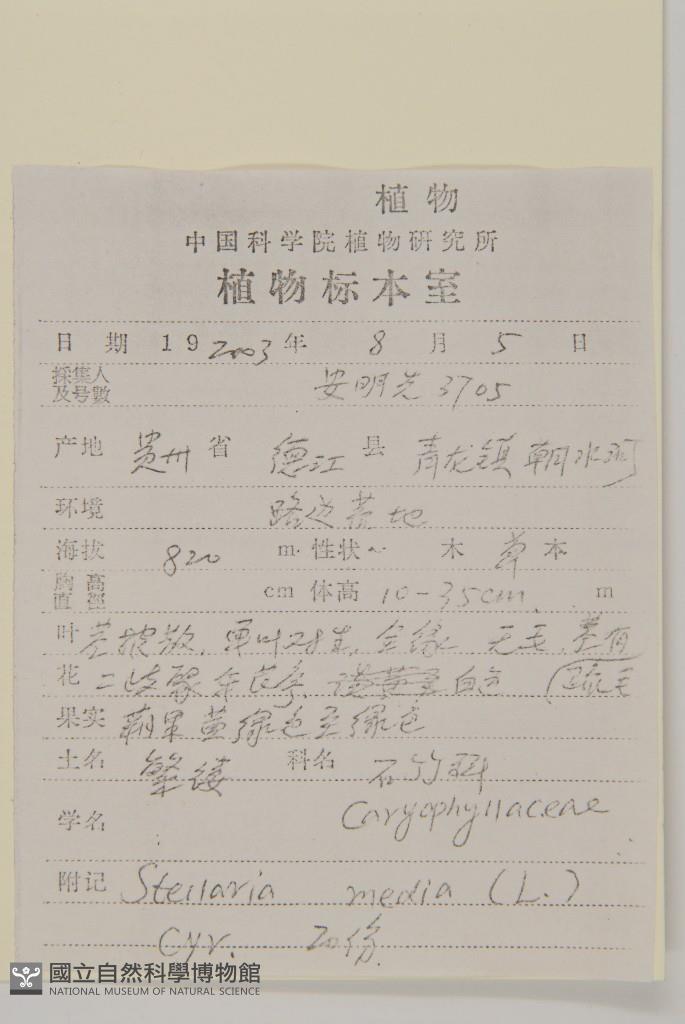 植物
中国科学院植物研究所
植物标本室
日期 19 2003 年 8 月 5 日
採集人及号數 安明先 3705
产地 贵州 省 德江 县 青龙镇 朝水河
环境 路边荒地
海拔 820 m. 性状~ 木 草 本
胸高直徑 cm 体高 10-35cm m
叶 茎披散,单叶对生,全缘 无毛,基有
花 二歧聚伞花序, 白色 (疏毛
果实 蒴果黄绿色至绿色
土名 繁缕 科名 石竹科
学名 Caryophyllaceae
附记 Stellaria media (L.)
Cyr. 20份
國立自然科學博物館
NATIONAL MUSEUM OF NATURAL SCIENCE